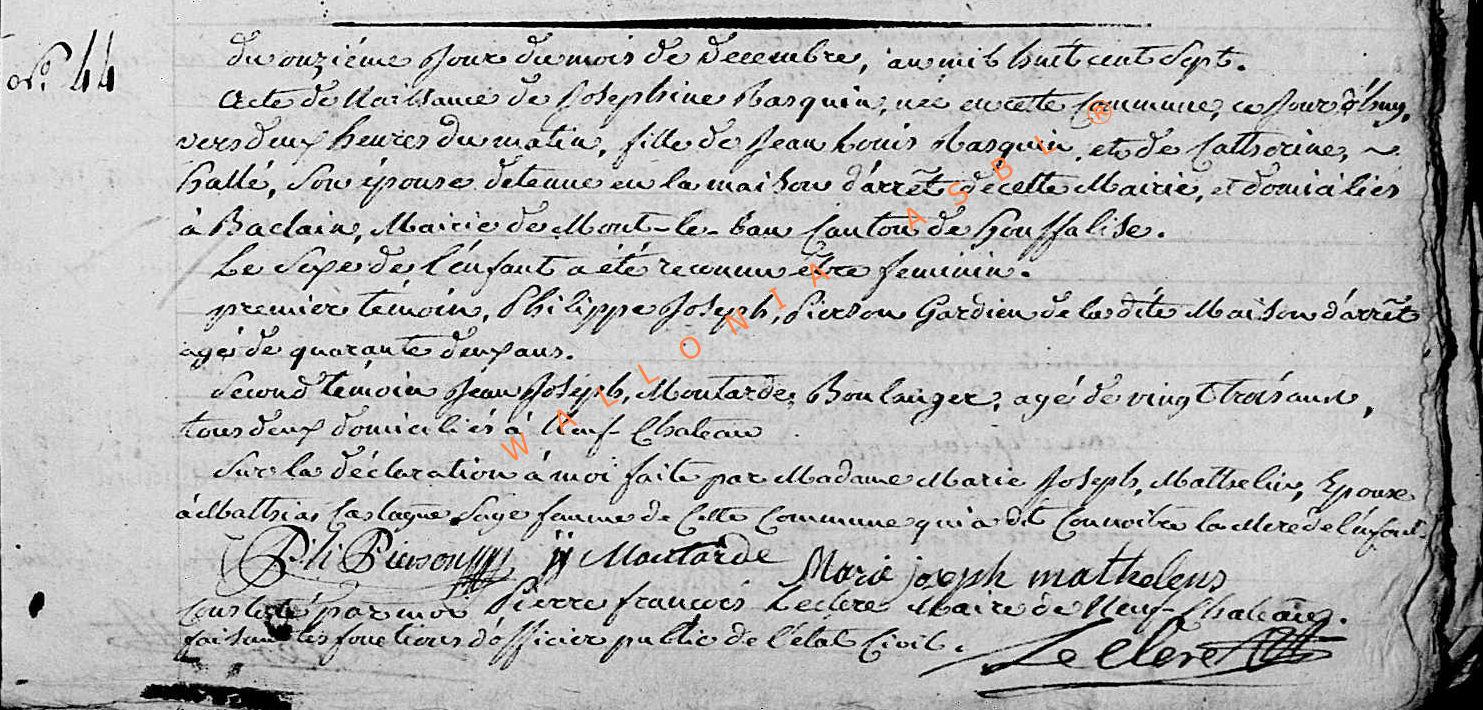 N.º 44
Du onziéme Jour du mois de Decembre, an mil huit cent Sept.
Acte de Naissance de Josephine Rasquin, née en cette Commune, ce Jour d'huy,
vers deux heures du matin, fille de Jean Louis Rasquin, et de Catherine, ~
Hallé, Son épouse detenue en la maison d'arrêt de cette Mairie, et domiciliés
à Baclain, Mairie de Mont-le-ban Canton de houffalise.
Le Sexe de l'énfant a été reconnu etre feminin.
premier témoin, Philippe Joseph, Pierson Gardien de la dite Maison d'arrêt
agé de quarante deux ans.
Second témoin Jean Joséph, Moutarde, Boulanger, agé de vingt trois ans,
tous deux domiciliés à Neuf-Chateau
Sur la déclaration à moi faite par Madame Marie Joseph, Mathelin, Epouse
à Mathias Castagne Sage femme de Cette Commune qui a dit Connoitre la Mere de l'énfant.
Ph Pierson JJ Moutarde Marie joseph mathelens
Constaté par moi Pierre françois Leclere Maire de Neuf-Chateau.
faisant les fonctions d'officier public de l'état Civil.
Leclere
WALLONIA ASBL ®